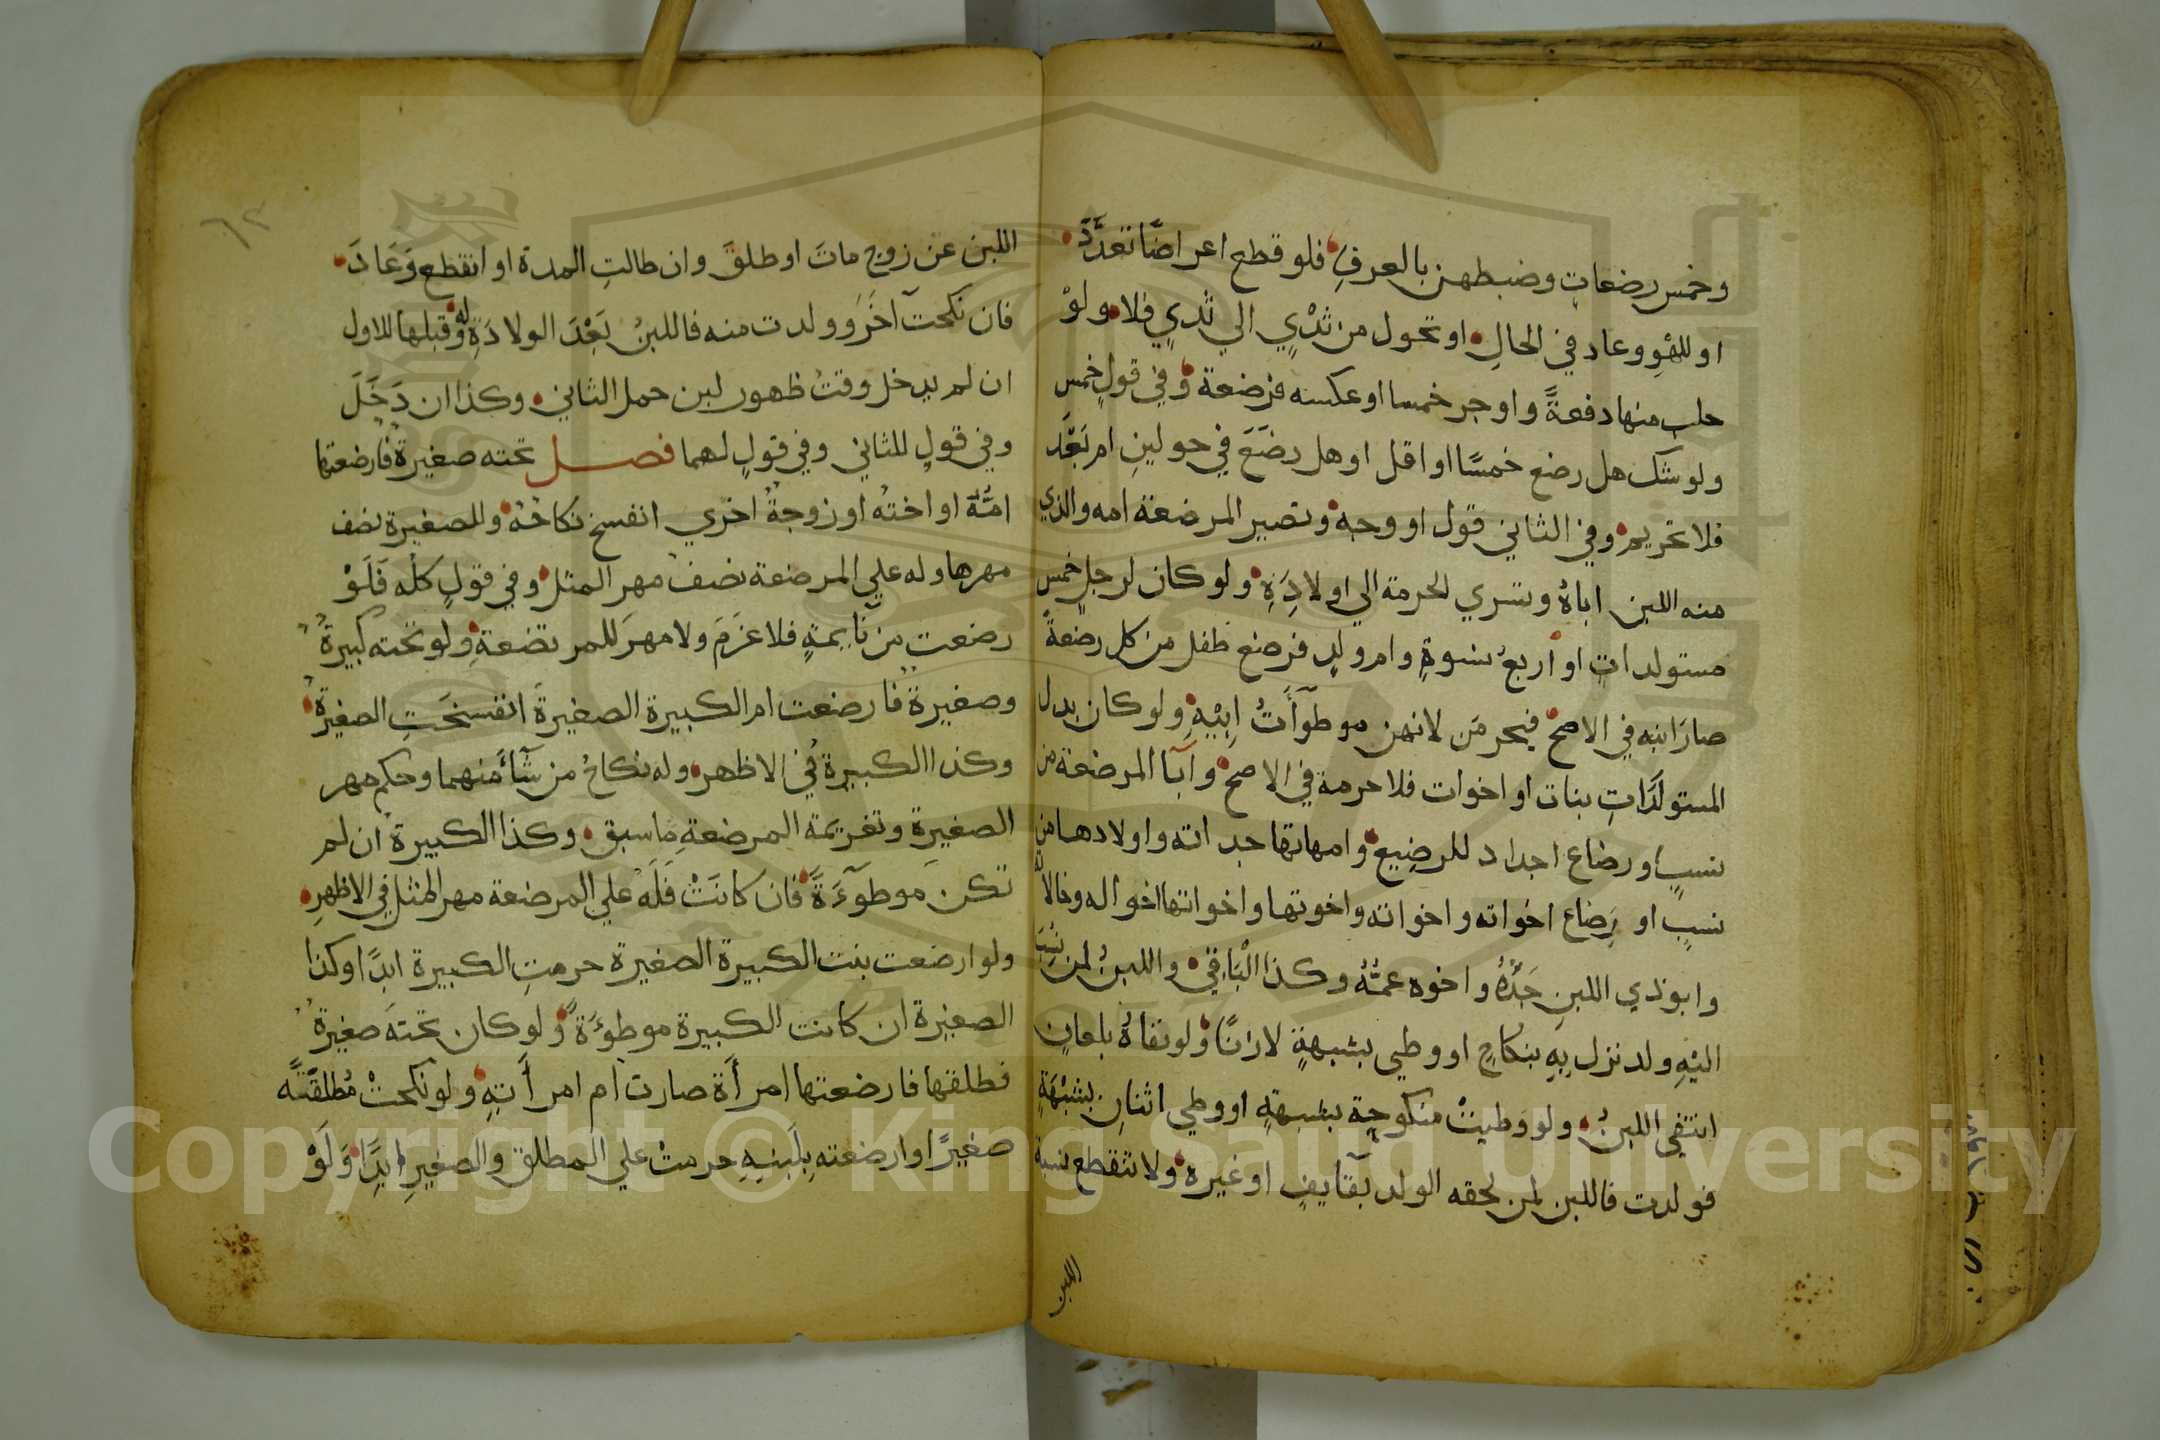 وخمس رضعات وضبطهن بالعرف فلو قطع اعراضًا تعدَّدَ
او للهْوِ وعاد في الحالِ او تحول من ثَدْيٍ الي ثديٍ فلا ولوْ
حلب منها دفعةً واوجر خمسا او عكسه فرضعة وفي قولٍ خمس
ولو شك هل رضع خمسًا او اقل او هل رضَعَ في حولينِ ام بَعْد
فلا تحريم وفي الثاني قول او وجه وتصير المرضعة امه والذي
منه اللبن اباهُ وتسري الحرمة الي اولادِهِ ولو كان لرجلٍ خمس
مستولدات او اربعُ نسوةٍ وام ولدٍ فرضع طفل من كل رضعةً
صارَ ابنه في الاصح فيحرمَن لانهن موطوآتُ ابِيْهِ ولو كان بدل
المستولَدَاتِ بنات او اخوات فلا حرمة في الاصح وآبآ المرضعة من
نسبٍ او رضاع اجداد للرضِيعِ وامهاتها جداته واولادها من
نسبٍ او رَضاع اخواته واخواته واخوتها واخواتها اخواله وخالاته
وابو ذي اللبنِ جَدُّهُ واخوه عمُّهُ وكذا الْبَاقِي واللبنُ لمن نُسِبَ
اليْهِ ولد نزل بِهِ بنكاحٍ او وطي بشبهةٍ لا زنًا ولو نفاهُ بلعانٍ
انتفي اللبنُ ولو وطيتْ منكوحة بشبهةٍ او وطي اثنانِ بشبْهَةٍ
فولدت فاللبن لمن لحقه الولد بقايفٍ او غيره ولا تنقطع نسبة
اللبن
٦٢
اللبن عن زوجٍ ماتَ او طلقَ وان طالتِ المدة او انقطع وَعَادَ
فان نكحت آخَرَ وولدت منه فاللبنُ بَعْدَ الولادَةِ له وقبلها للاول
ان لم يدخل وقتُ ظهور لبن حمل الثاني وكذا ان دَخَلَ
وفي قولٍ للثاني وفي قولٍ لهما فصل تحته صغيرةٌ فارضعتها
امُّهُ او اختُه او زوجةٌ اخري انفسخ نكاحُهُ وللصغيرة نصف
مهرها وله علي المرضعة نصفُ مهر المثل وفي قولٍ كله فَلَوْ
رضعت من نايمةٍ فلا غرَمَ ولا مهرَ للمرتضعةِ ولو تحته كبيرةٌ
وصغيرةٌ فارضعت ام الكبيرة الصغيرةَ انفسخَتِ الصغيرةُ
وكذا الكبيرةُ في الاظهر وله نكاحُ من شآءَ منهما وحكم مهر
الصغيرة وتغريمه المرضعةِ ما سبق وكذا الكبيرة ان لم
تكن موطوآءَةً فان كانَتْ فَلَهُ علي المرضعة مهر المثل في الاظهرِ
ولو ارضعت بنت الكبيرة الصغيرة حرمتِ الكبيرة ابدًا وكذا
الصغيرة ان كانت الكبيرة موطوءَةً ولو كان تحتهَ صغيرةٌ
فطلقها فارضعتها امرأة صارت ام امرأَتِهِ ولو نكحتْ مُطلقتُه
صغيرًا وارضعته بِلَبَنِهِ حرمتْ علي المطلق والصغيرِ ابدًا وَلَوْ
Copyright © King Saud University